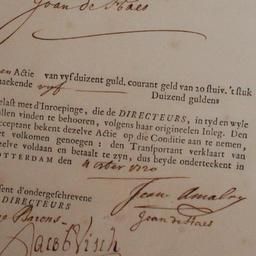 Joan de Haes
Actie van vyf duizent guld. courant geld van 20 stuiv. 't stuk
maekende vyf Duizend guldens
elast met d'Inroepinge, die de DIRECTEURS, in tyd en wyle
ullen vinden te behooren, volgens haar origineelen Inleg. Den
cceptant bekent dezelve Actie op die Conditie aan te nemen,
et volkomen genoegen: den Transportant verklaart van
ezelve voldaan en betaalt te zyn, dus beyde onderteekent in
OTTERDAM den 4 octob 1720
sent d'ondergeschrevene
DIRECTEURS
Jean Amalry
Joan de Haes
Barons
Jacob Visch